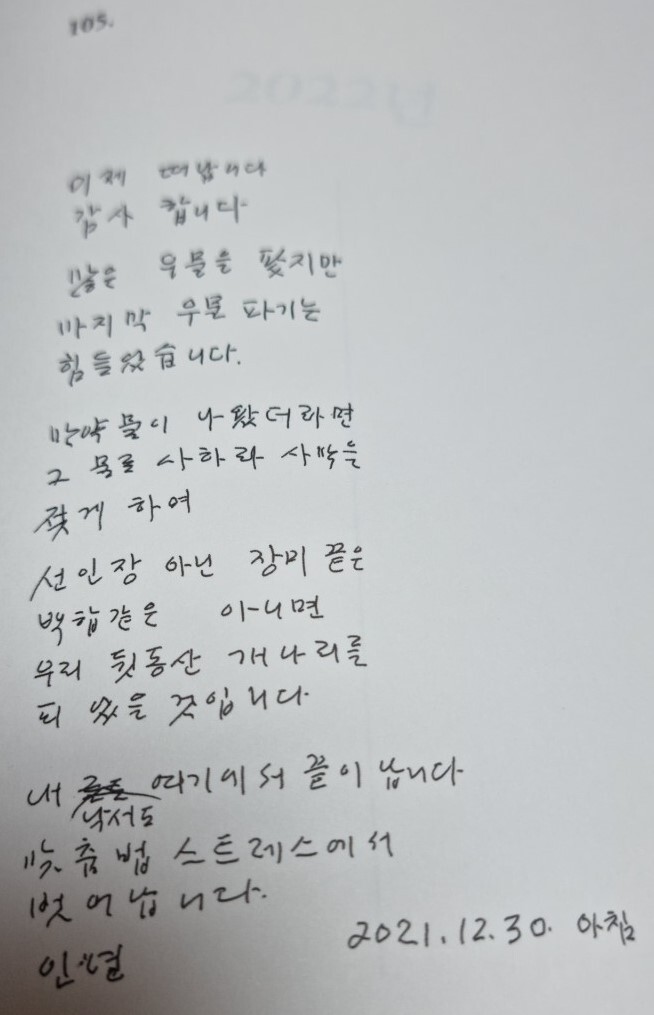 105.
이제 떠납니다
감사 합니다
많은 우물을 팠지만
마지막 우물 파기는
힘들었습니다.
만약 물이 나왔더라면
그 물로 사하라 사막을
젖게 하여
선인장 아닌 장미 끝은
백합같은 아니면
우리 뒷동산 개나리를
피웠을 것입니다.
내 여기에서 끝이 납니다
낙서도
맞춤법 스트레스에서
벗어납니다.
2021.12.30. 아침